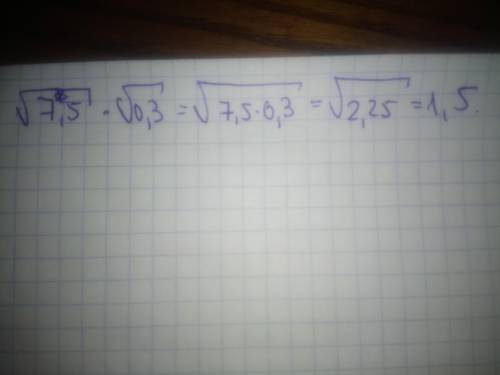 √7,5 · √0,3 = √7,5·0,3 = √2,25 = 1,5.